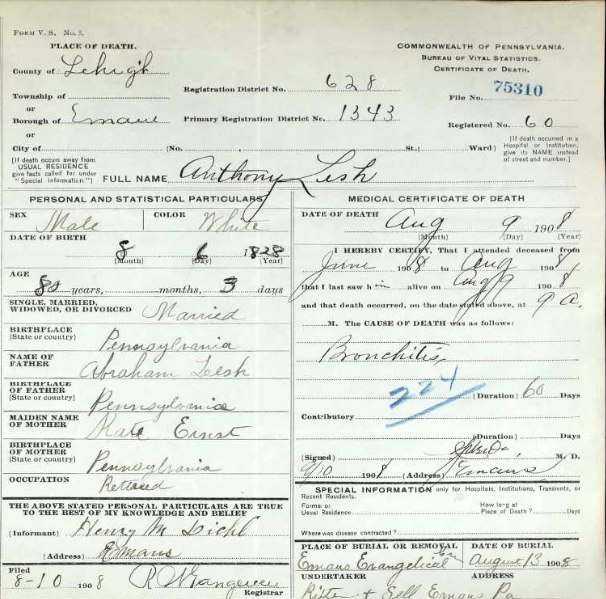 FORM V. S. No. 5.
PLACE OF DEATH.
County of Lehigh
Township of
or
Borough of Emaus
City of (No. St.; Ward)
[If death occurs away from
USUAL RESIDENCE
give facts called for under
"Special Information."]
COMMONWEALTH OF PENNSYLVANIA.
BUREAU OF VITAL STATISTICS.
CERTIFICATE OF DEATH.
Registration District No. 628
File No. 75310
Primary Registration District No. 1343
Registered No. 60
[If death occurred in a
Hospital or Institution,
give its NAME instead
of street and number.]
FULL NAME Anthony Lesh
PERSONAL AND STATISTICAL PARTICULARS
SEX Male COLOR White
DATE OF BIRTH
8 6 1828
(Month) (Day) (Year)
AGE
80 years, months, 3 days
SINGLE, MARRIED,
WIDOWED, OR DIVORCED Married
BIRTHPLACE
(State or country) Pennsylvania
NAME OF
FATHER Abraham Lesh
BIRTHPLACE
OF FATHER
(State or country) Pennsylvania
MAIDEN NAME
OF MOTHER Kate Ernst
BIRTHPLACE
OF MOTHER
(State or country) Pennsylvania
OCCUPATION Retired
THE ABOVE STATED PERSONAL PARTICULARS ARE TRUE
TO THE BEST OF MY KNOWLEDGE AND BELIEF
(Informant) Henry M Diehl
(Address) Emaus
Filed
8-10 1908
Registrar
MEDICAL CERTIFICATE OF DEATH
DATE OF DEATH Aug 9 1908
(Month) (Day) (Year)
I HEREBY CERTIFY, That I attended deceased from
June 1908 to Aug 1908
that I last saw him alive on Aug 9 1908
and that death occurred, on the date stated above, at 9 a.
M. The CAUSE OF DEATH was as follows:
Bronchitis
224
(Duration) 60 Days
Contributory
(Duration) Days
(Signed) M. D.
9/10 1908 (Address) Emaus
SPECIAL INFORMATION only for Hospitals, Institutions, Transients, or
Recent Residents.
Former or
Usual Residence
How long at
Place of Death? Days
Where was disease contracted?
PLACE OF BURIAL OR REMOVAL DATE OF BURIAL
Emaus Evangelical August 13 1908
UNDERTAKER ADDRESS
+ Sell Emaus Pa